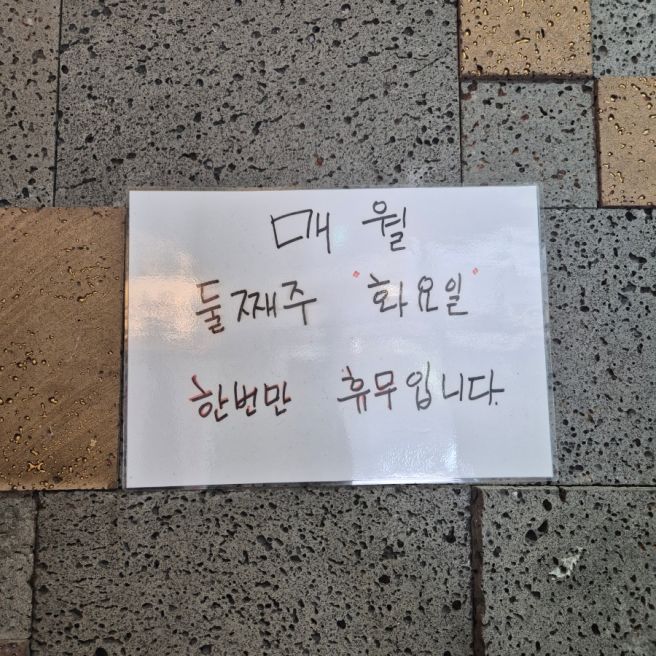 매 월
둘째주 "화요일"
한번만 휴무입니다.